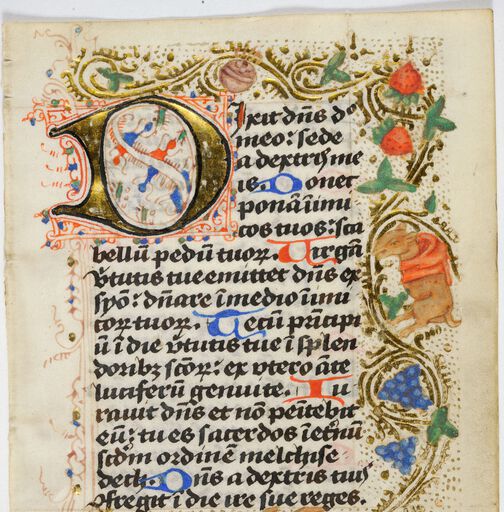 Dixit dn̄s do
meo: sede
a dextris me
is. Donec
ponā īimi
cos tuos: sca
bellū pedū tuoꝝ. Virgā
v̓tutis tue emittet dn̄s ex
syō: dn̄are ī medio īimi
coꝝ tuoꝝ. Tecū prīcipi
ū ī die v̓tutis tue ī splen
doribꝰ scōꝝ: ex vtero āte
luciferū genui te. Iu
rauit dn̄s et nō pēitebit
eū: tu es sacerdos ī etnū
scdm̄ ordinē melchise
dech. Dn̄s a dextris tuis
ꝯfregit ī die ire sue reges.